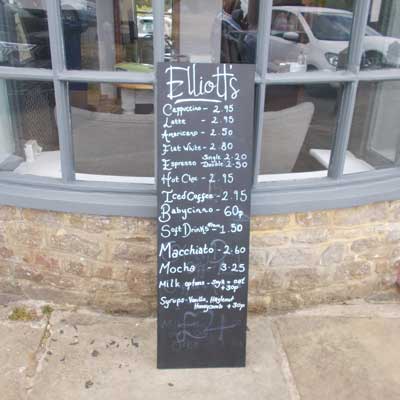 Elliott's
Cappuccino - 2.95
Latte - 2.95
Americano - 2.50
Flat White - 2.80
Espresso Single 2.20
Double 2.50
Hot Choc - 2.95
Iced Coffee - 2.95
Babycinno - 60p
Soft Drinks from - 1.50
Macchiato - 2.60
Mocha - 3.25
Milk options - soya + oat
+30p
Syrups - Vanilla, Hazlenut
Honeycomb +30p
£4